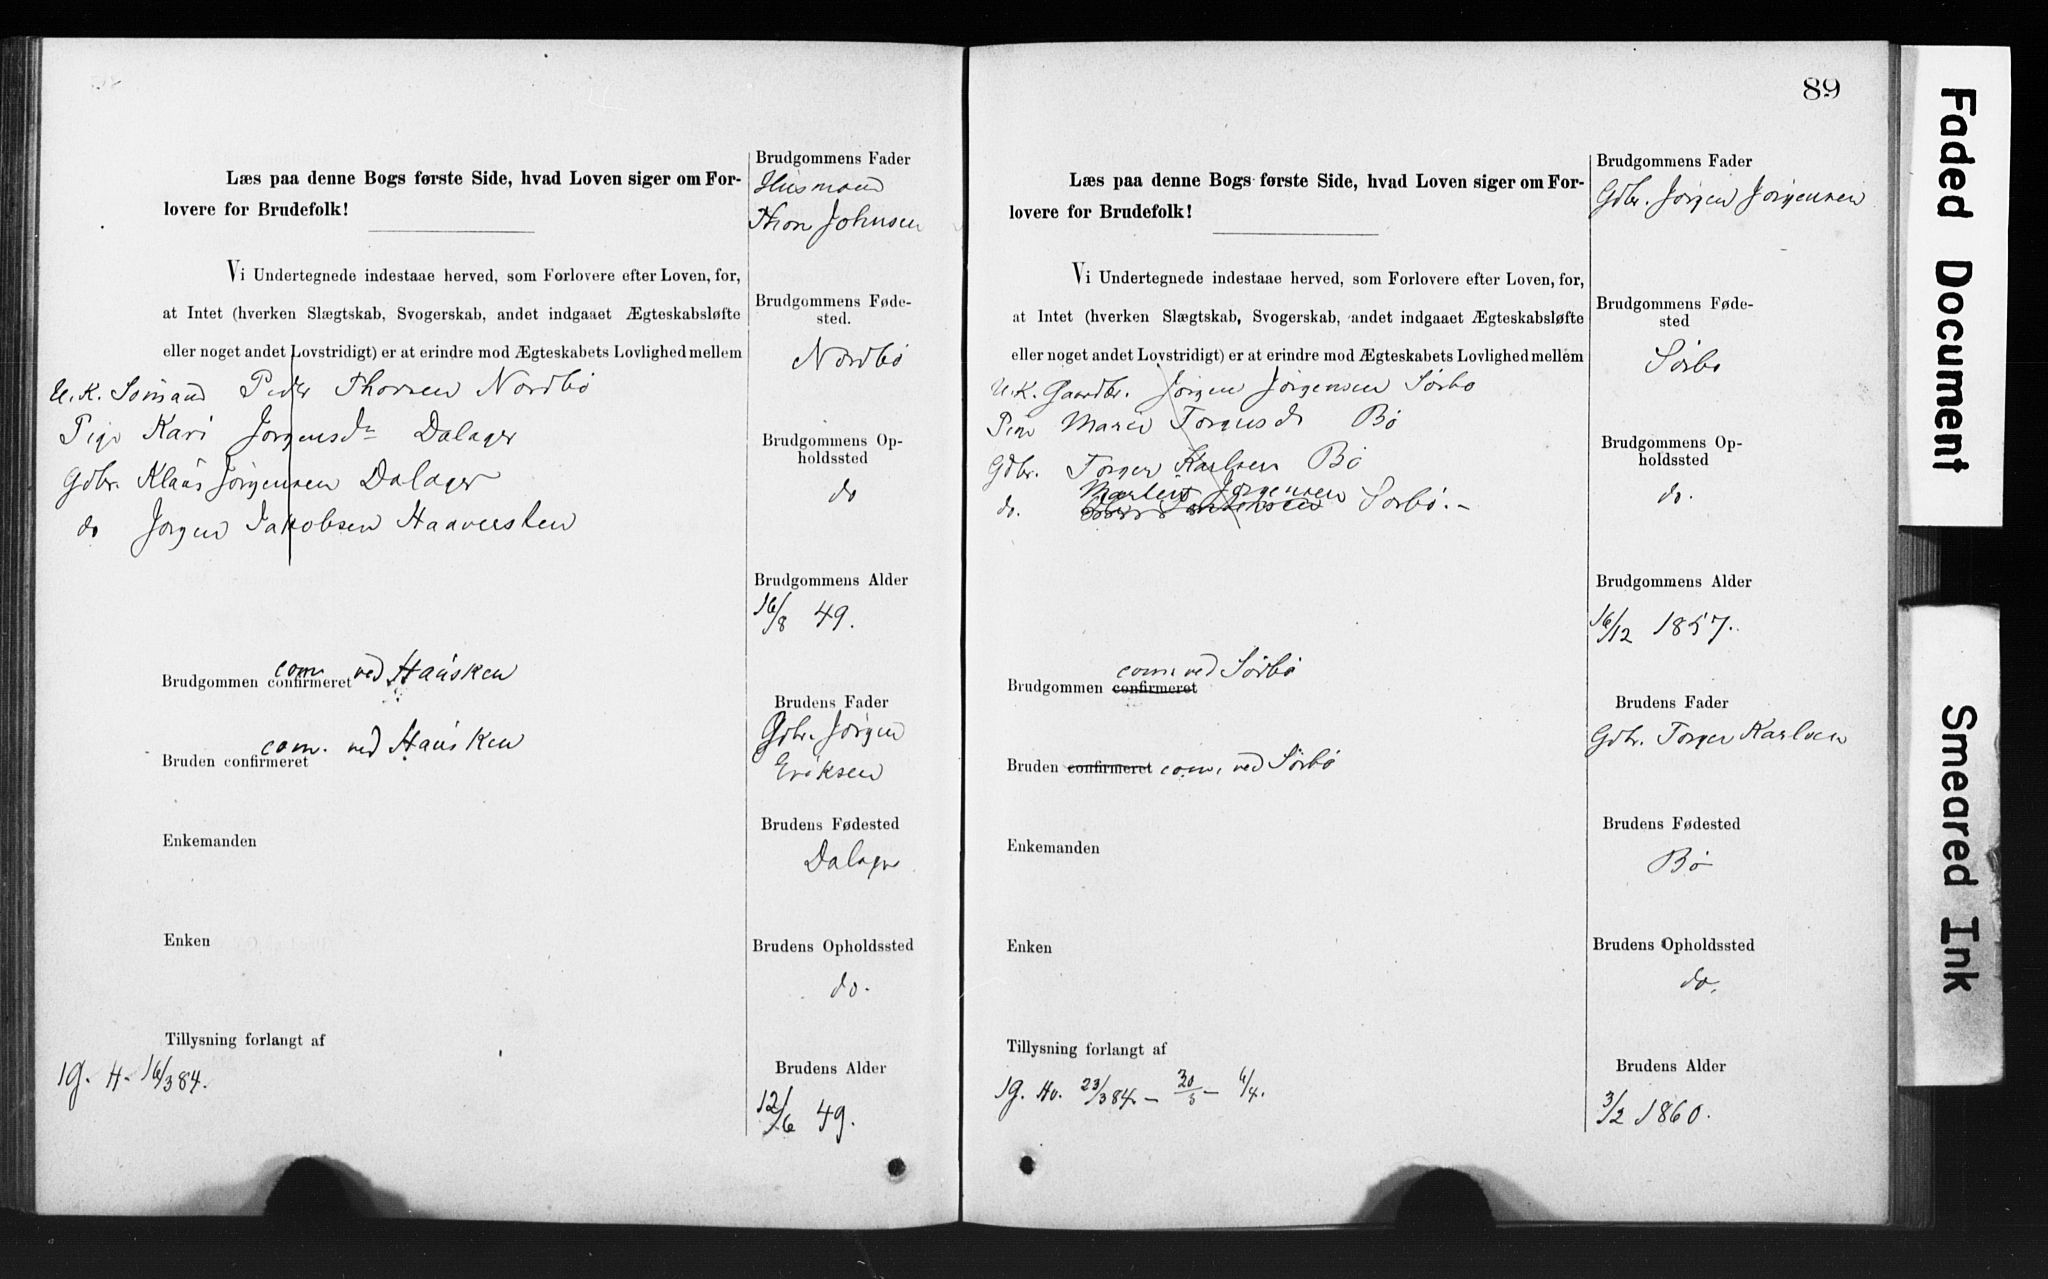 Læs paa denne Bogs første Side, hvad Loven siger om For-
lovere for Brudefolk!
Vi Undertegnede indestaae herved, som Forlovere efter Loven, for,
at Intet (hverken Slægtskab, Svogerskab, andet indgaaet Ægteskabsløfte
eller noget andet Lovstridigt) er at erindre mod Ægteskabets Lovlighed mellem
U. K. Sömand Peder Thorsen Nordbö
Pige Kari Jörgensdr Dalager
Gdbr. Klaus Jörgensen Dalager
do Jörgen Jakobsen Haaversken
Brudgommen confirmeret com. ved Hausken
Bruden confirmeret com. ved Hausken
Enkemanden
Enken
Tillysning forlangt af
1g. H. 16/3 84.
Brudgommens Fader
Husmand
Thore Johnsen
Brudgommens Føde-
sted.
Nordbö
Brudgommens Op-
holdssted
do
Brudgommens Alder
16/8 49.
Brudens Fader
Gdbr. Jörgen
Eriksen
Brudens Fødested
Dalager
Brudens Opholdssted
do.
Brudens Alder
12/6 49.
89
Læs paa denne Bogs første Side, hvad Loven siger om For-
lovere for Brudefolk!
Vi Undertegnede indestaae herved, som Forlovere efter Loven, for,
at Intet (hverken Slægtskab, Svogerskab, andet indgaaet Ægteskabsløfte
eller noget andet Lovstridigt) er at erindre mod Ægteskabets Lovlighed mellem
U. K. Gaardbr. Jörgen Jörgensen Sörbö
Pige Maria Torgersdr Bö
Gdbr. Torger Karlsen Bö
do. Martin Jörgensen Sörbö.-
Brudgommen confirmeret com. ved Sörbö
Bruden confirmeret com. ved Sörbö
Enkemanden
Enken
Tillysning forlangt af
1g. Hv. 23/3 84 - 30/3 - 6/4.
Brudgommens Fader
Gdbr. Jörgen Jörgensen
Brudgommens Føde-
sted
Sörbö
Brudgommens Op-
holdssted
do.
Brudgommens Alder
16/12 1857.
Brudens Fader
Gdbr. Torger Karlsen
Brudens Fødested
Bö
Brudens Opholdssted
do.
Brudens Alder
3/2 1860.
Faded Document
Smeared Ink